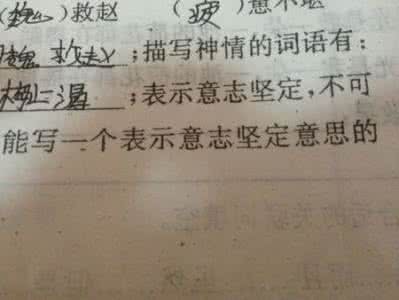 )救赵 (疲)惫不堪
魏救赵;描写神情的词语有:
;表示意志坚定,不可
能写一个表示意志坚定意思的